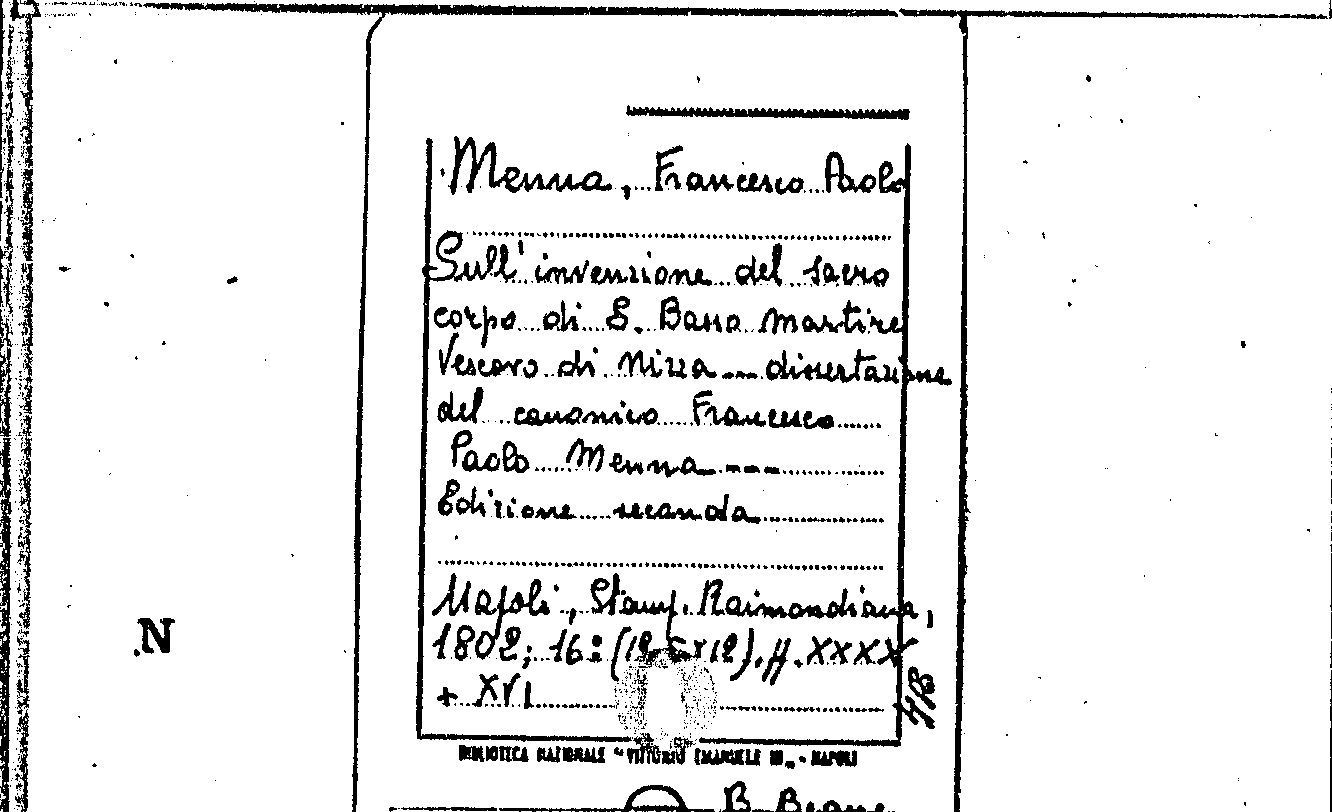 Menna, Francesco Paolo
Sull' invenzione del sacro
corpo di S. Basso martire
Vescovo di Nizza --- dissertazione
del canonico Francesco
Paolo Menna ---
Edizione seconda
Napoli, Stamp. Raimondiana,
1802; 16º pp. XXXX
+ XVI
N
BIBLIOTECA NAZIONALE "VITTORIO EMANUELE III" - NAPOLI
B.